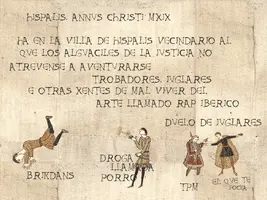 HISPALIS. ANNVS CHRISTI MXIX
HA EN LA VILLA DE HISPALIS VECINDARIO AL
QVE LOS ALGVACILES DE LA IVSTICIA NO
ATREVENSE A AVENTVRARSE
TROBADORES, IVGLARES
E OTRAS XENTES DE MAL VIVER DEL
ARTE LLAMADO RAP IBERICO
DVELO DE IVGLARES
BRIKDANS
DROGA
LLAMADA
PORRO
TPM
EL QVE TE